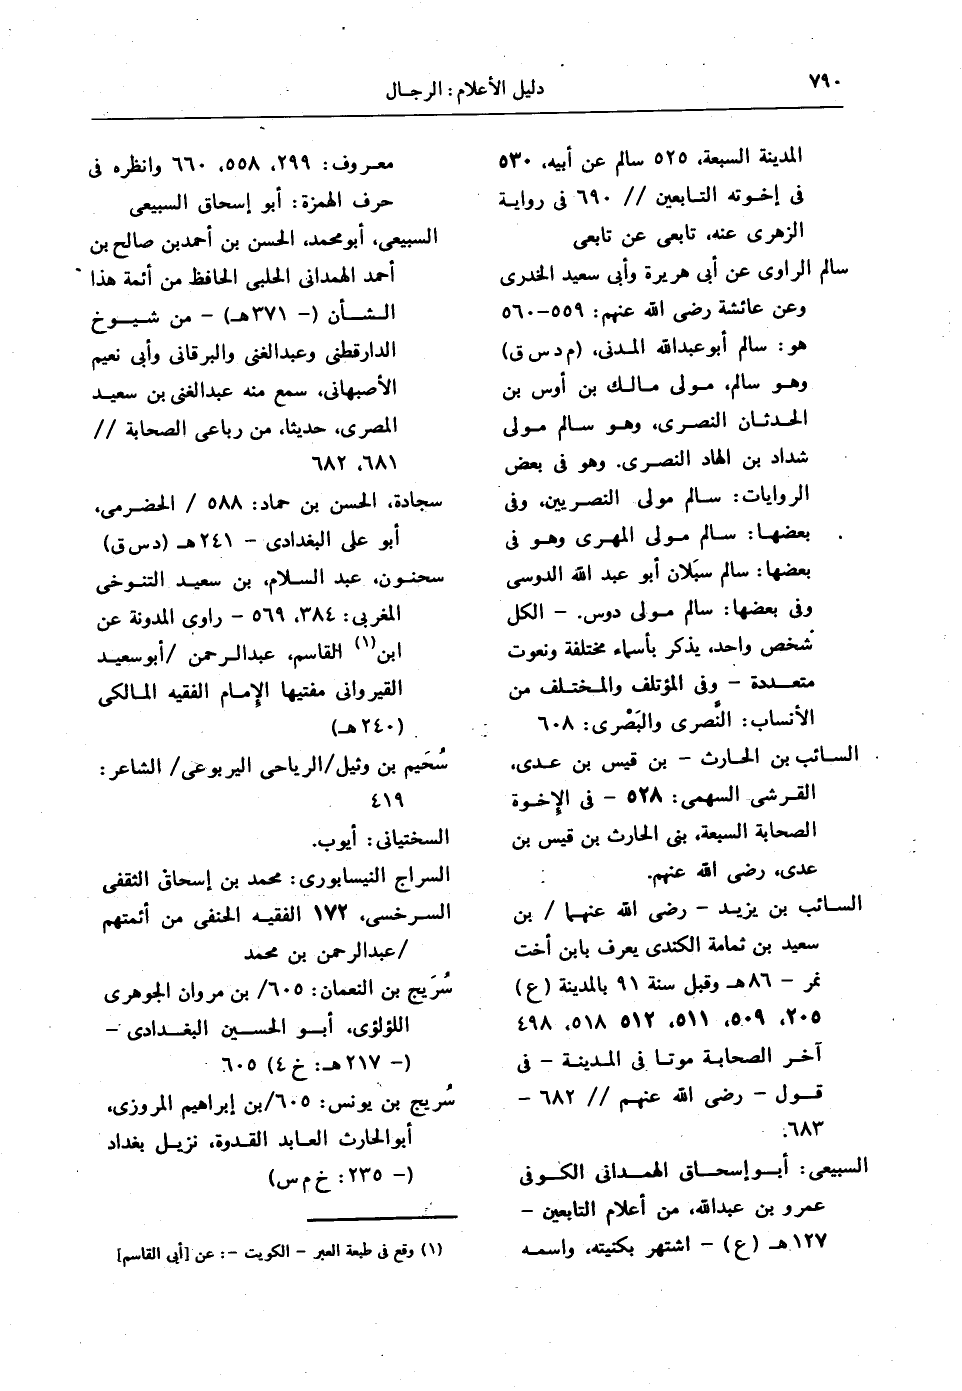 ٧٩٠
دليل الأعلام: الرجال
المدينة السبعة، ٥٢٥ سالم عن أبيه، ٥٣٠
فى إخوته التابعين // ٦٩٠ فى رواية
الزهرى عنه، تابعى عن تابعى
سالم الراوى عن أبى هريرة وأبى سعيد الخدرى
وعن عائشة رضى الله عنهم: ٥٥٩-٥٦٠
هو: سالم أبوعبدالله المدنى، (م د س ق)
وهو سالم، مولى مالك بن أوس بن
الحدثان النصرى، وهو سالم مولى
شداد بن الهاد النصرى. وهو فى بعض
الروايات: سالم مولى النصريين، وفى
بعضها: سالم مولى المهرى وهو فى
بعضها: سالم سبَلان أبو عبد الله الدوسى
وفى بعضها: سالم مولى دوس. - الكل
شخص واحد، يذكر بأسماء مختلفة ونعوت
متعددة - وفى المؤتلف والمختلف من
الأنساب: النَّصرى والبَصْرى: ٦٠٨
السائب بن الحارث - بن قيس بن عدى،
القرشى السهمى: ٥٢٨ - فى الإخوة
الصحابة السبعة، بنى الحارث بن قيس بن
عدى، رضى الله عنهم.
السائب بن يزيد - رضى الله عنهما / بن
سعيد بن ثمامة الكندى يعرف بابن أخت
نمر - ٨٦هـ وقيل سنة ٩١ بالمدينة (ع)
٢٠٥، ٥٠٩، ٥١١، ٥١٢ ٥١٨، ٤٩٨
آخر الصحابة موتا فى المدينة - فى
قول - رضى الله عنهم // ٦٨٢ -
٦٨٣.
السبيعى: أبوإسحاق الهمدانى الكوفى
عمرو بن عبدالله، من أعلام التابعين -
١٢٧هـ (ع) - اشتهر بكنيته، واسمه
معروف: ٢٩٩، ٥٥٨، ٦٦٠ وانظره فى
حرف الهمزة: أبو إسحاق السبيعى
السبيعى، أبومحمد، الحسن بن أحمدبن صالح بن
أحمد الهمدانى الحلبى الحافظ من أئمة هذا
الشأن (- ٣٧١هـ) - من شيوخ
الدارقطنى وعبدالغنى والبرقانى وأبى نعيم
الأصبهانى، سمع منه عبدالغنى بن سعيد
المصرى، حديثا، من رباعى الصحابة //
٦٨١، ٦٨٢
سجادة، الحسن بن حماد: ٥٨٨ / الحضرمى،
أبو على البغدادى - ٢٤١هـ (د س ق)
سحنون، عبد السلام، بن سعيد التنوخى
المغربى: ٣٨٤، ٥٦٩ - راوى المدونة عن
ابن(١) القاسم، عبدالرحمن /أبوسعيد
القيروانى مفتيها الإمام الفقيه المالكى
(٢٤٠هـ)
سُحَيم بن وثيل/الرياحى اليربوعى/ الشاعر:
٤١٩
السختيانى: أيوب.
السراج النيسابورى: محمد بن إسحاق الثقفى
السرخسى، ١٧٢ الفقيه الحنفى من أئمتهم
/عبدالرحمن بن محمد
سُرَيج بن النعمان: ٦٠٥/ بن مروان الجوهرى
اللؤلؤى، أبو الحسين البغدادى -
(- ٢١٧هـ: خ ٤) ٦٠٥
سُريج بن يونس: ٦٠٥/بن إبراهيم المروزى،
أبوالحارث العابد القدوة، نزيل بغداد
(- ٢٣٥: خ م س)
(١) وقع فى طبعة العبر - الكويت -: عن [أبى القاسم]